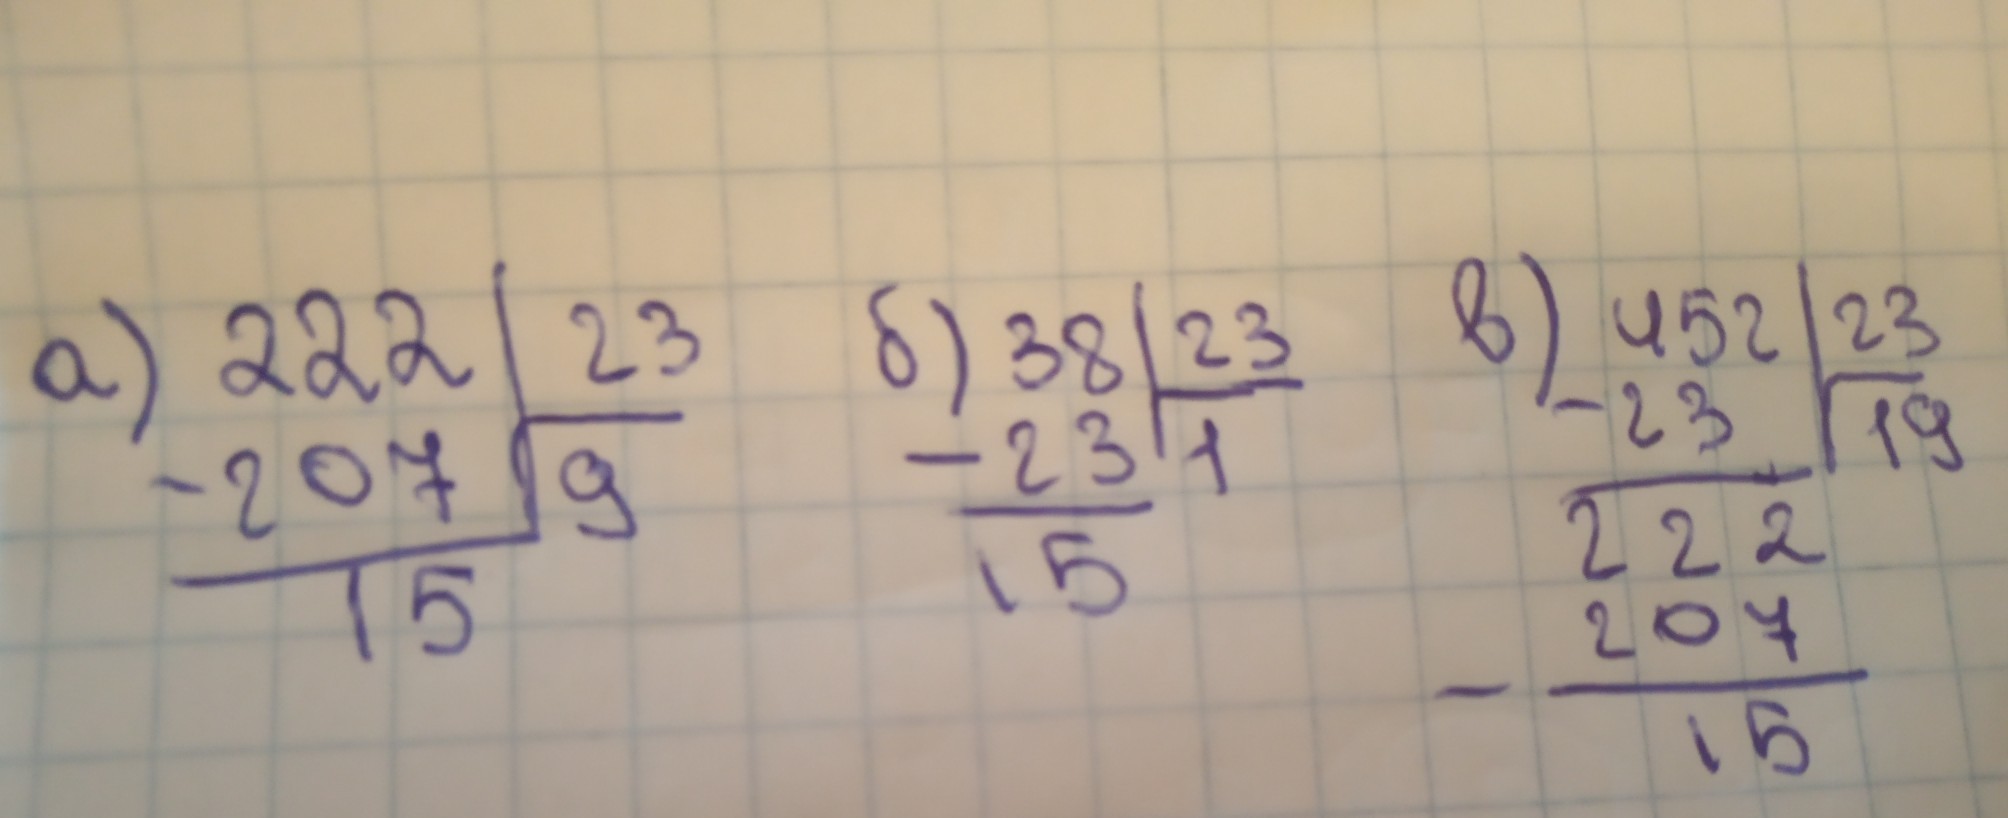 а) 222 23
-207 9
15
б) 38 23
-23 1
15
в) 452 23
-23 19
222
207
-
15